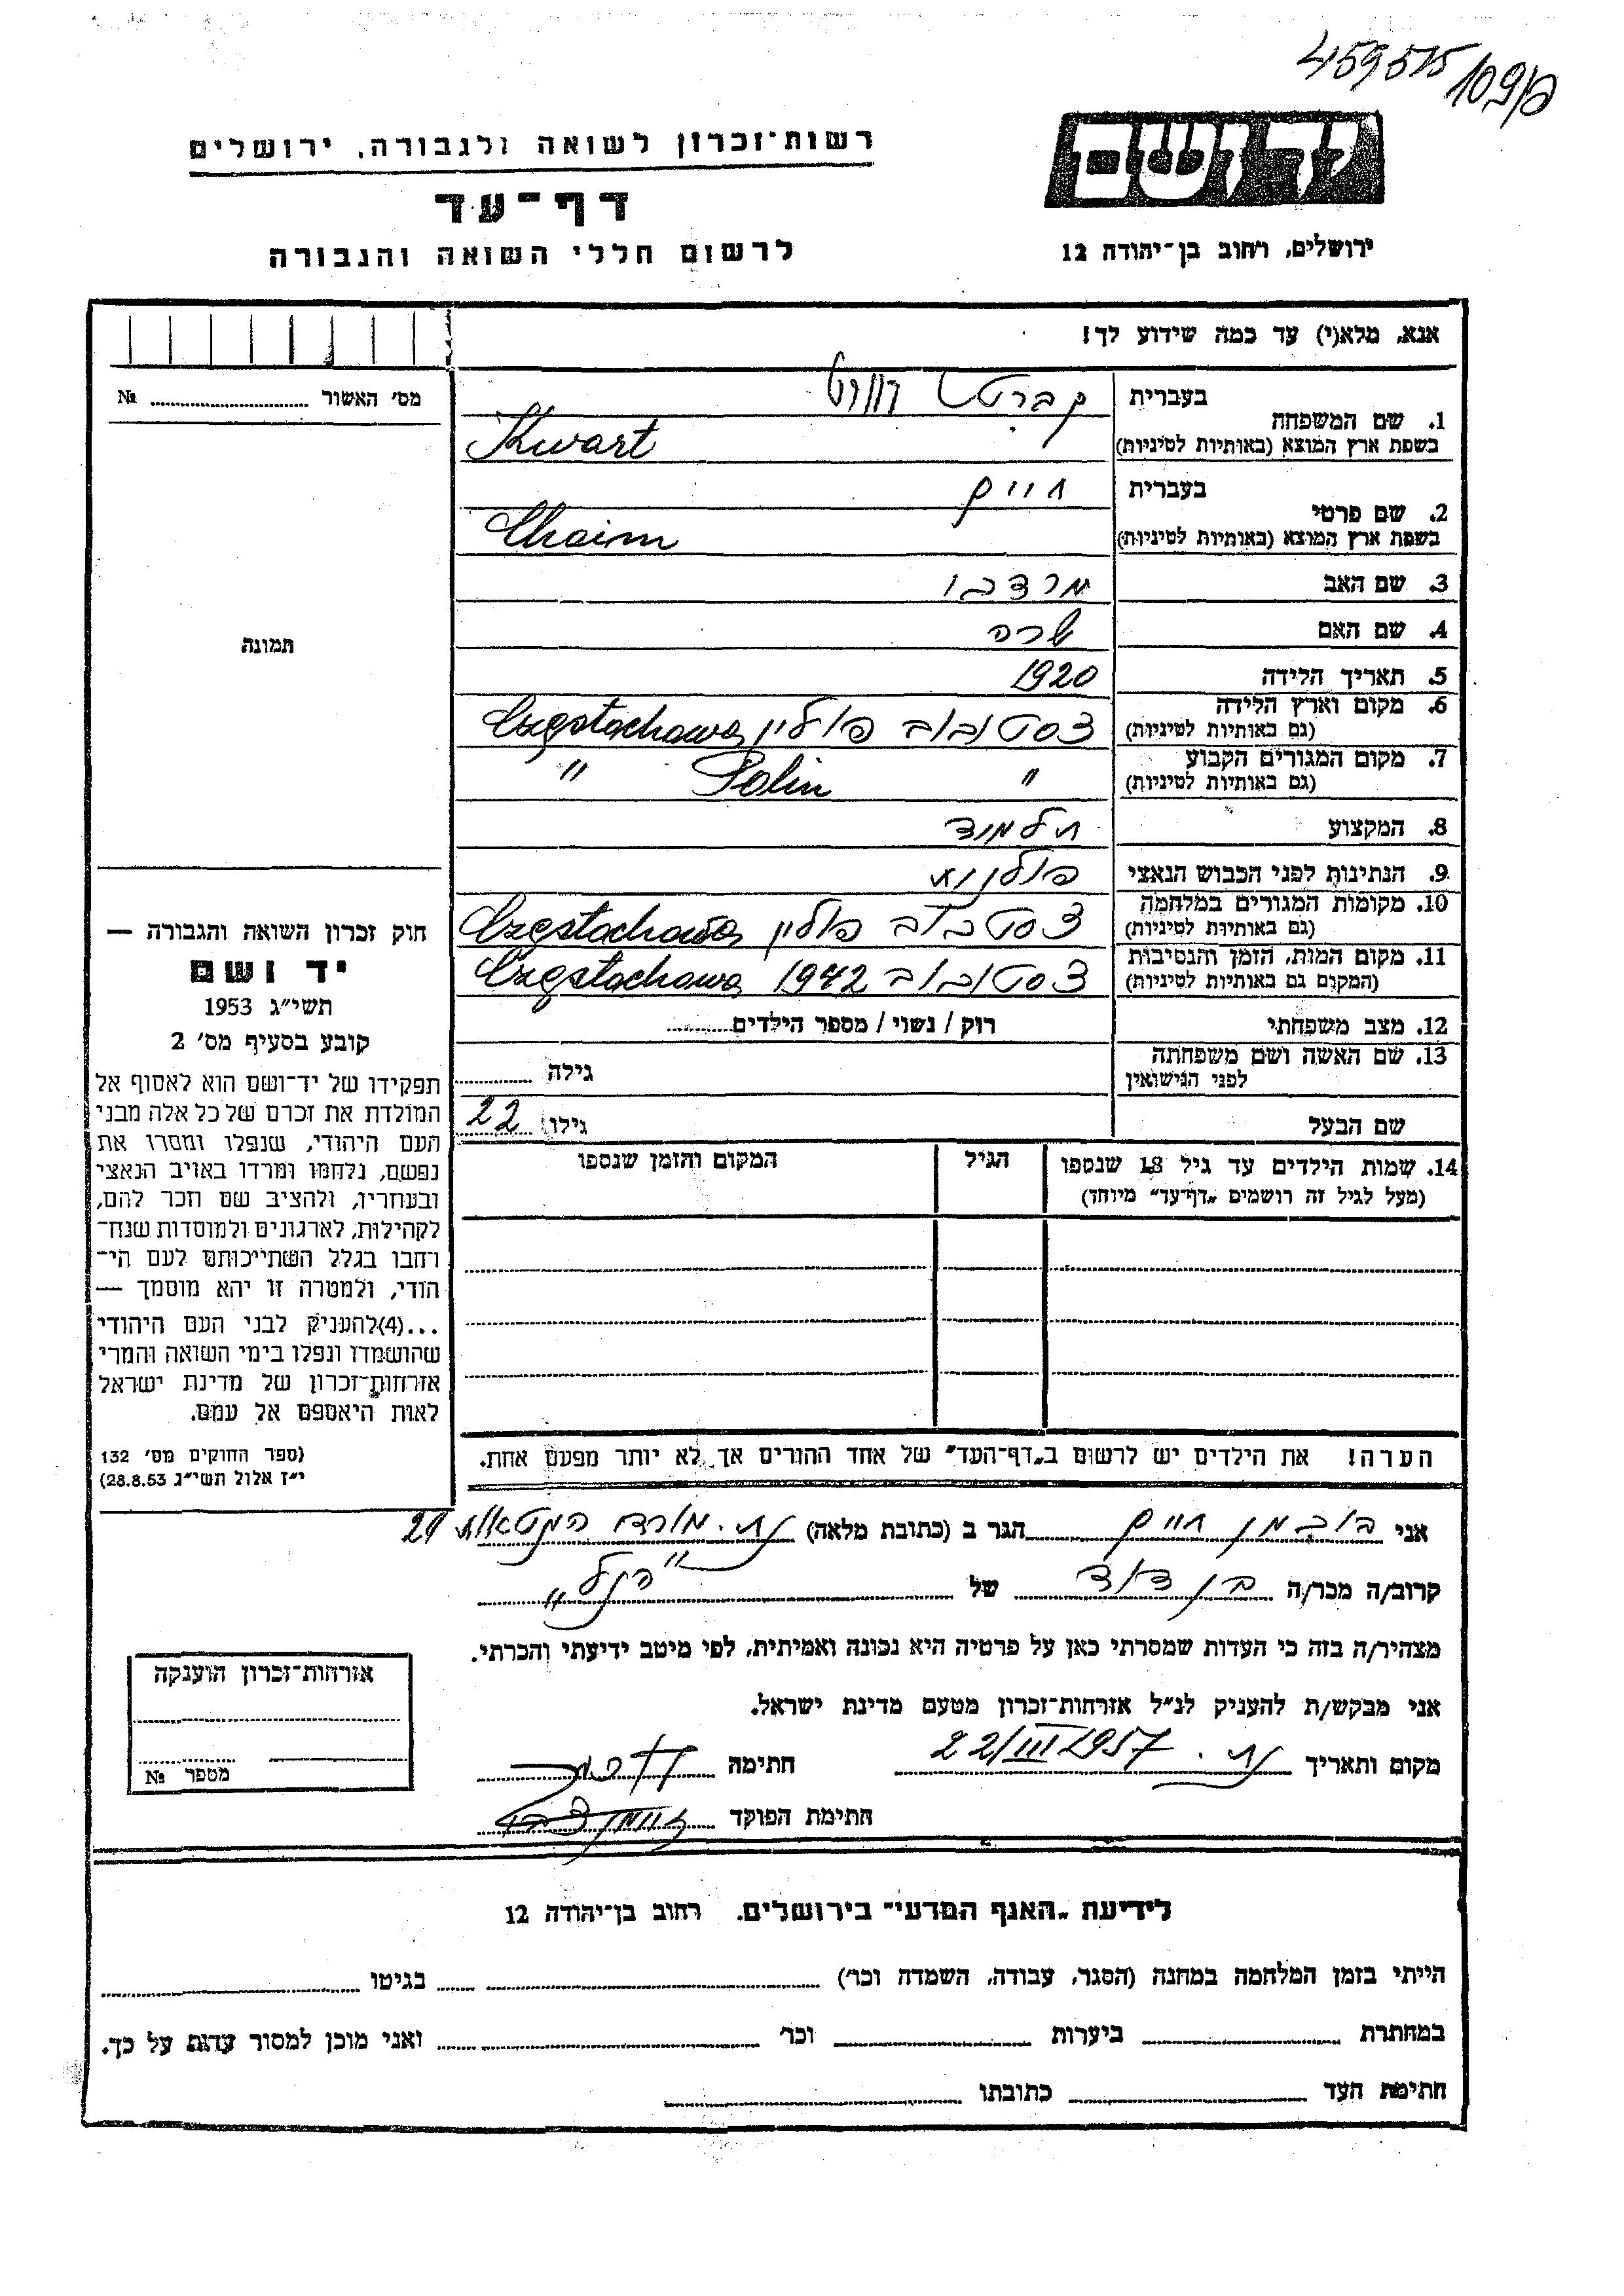 459575
109/פ
רשות־זכרון לשואה ולגבורה, ירושלים
יד ושם
דף־עד
לרשום חללי השואה והגבורה
ירושלים, רחוב בן־יהודה 12
אנא, מלא(י) עד כמה שידוע לך!
מס׳ האשור № 
תמונה
חוק זכרון השואה והגבורה —
יד ושם
תשי״ג 1953
קובע בסעיף מס׳ 2
תפקידו של יד־ושם הוא לאסוף אל
המולדת את זכרם של כל אלה מבני
העם היהודי, שנפלו ומסרו את
נפשם, נלחמו ומרדו באויב הנאצי
ובעוזריו, ולהציב שם וזכר להם,
לקהילות, לארגונים ולמוסדות שנח־
רחבו בגלל השתייכותם לעם הי־
הודי, ולמטרה זו יהא מוסמך —
...(4)להעניק לבני העם היהודי
שהושמדו ונפלו בימי השואה והמרי
אזרחות־זכרון של מדינת ישראל
לאות היאספם אל עמם.
(ספר החוקים מס׳ 132
י״ז אלול תשי״ג 28.8.53)
1. שם המשפחה בעברית קברט
בשפת ארץ המוצא (באותיות לטיניות) Kwart
2. שם פרטי בעברית חיים
בשפת ארץ המוצא (באותיות לטיניות) Chaim
3. שם האב מרדכי
4. שם האם שרה
5. תאריך הלידה 1920
6. מקום וארץ הלידה (גם באותיות לטיניות) צסטוכוב פולין Częstochowa
7. מקום המגורים הקבוע (גם באותיות לטיניות) " Polin "
8. המקצוע תלמיד
9. הנתינות לפני הכבוש הנאצי פולנית
10. מקומות המגורים במלחמה (גם באותיות לטיניות) צסטכוב פולין Częstochowa
11. מקום המות, הזמן והנסיבות (המקום גם באותיות לטיניות) צסטוכוב 1942 Częstochowa
12. מצב משפחתי רוק / נשוי / מספר הילדים
13. שם האשה ושם משפחתה לפני הנישואין גילה
שם הבעל גילו 22
14. שמות הילדים עד גיל 18 שנספו הגיל המקום והזמן שנספו
(מעל לגיל זה רושמים „דף־עד״ מיוחד)
הערה! את הילדים יש לרשום ב„דף־העד״ של אחד ההורים אך לא יותר מפעם אחת.
אני חיים הגר ב (כתובת מלאה)
קרוב/ה מכר/ה בן דוד של "הנ״ל"
מצהיר/ה בזה כי העדות שמסרתי כאן על פרטיה היא נכונה ואמיתית, לפי מיטב ידיעתי והכרתי.
אני מבקש/ת להעניק לנ״ל אזרחות־זכרון מטעם מדינת ישראל.
מקום ותאריך 22/III 1957 חתימה
חתימת הפוקד
אזרחות־זכרון הוענקה
מספר №
לידיעת „האגף המדעי״ בירושלים. רחוב בן־יהודה 12
הייתי בזמן המלחמה במחנה (הסגר, עבודה, השמדה וכר׳) בגיטו
במחתרת ביערות וכר׳ ואני מוכן למסור עדות על כך.
חתימת העד כתובתו